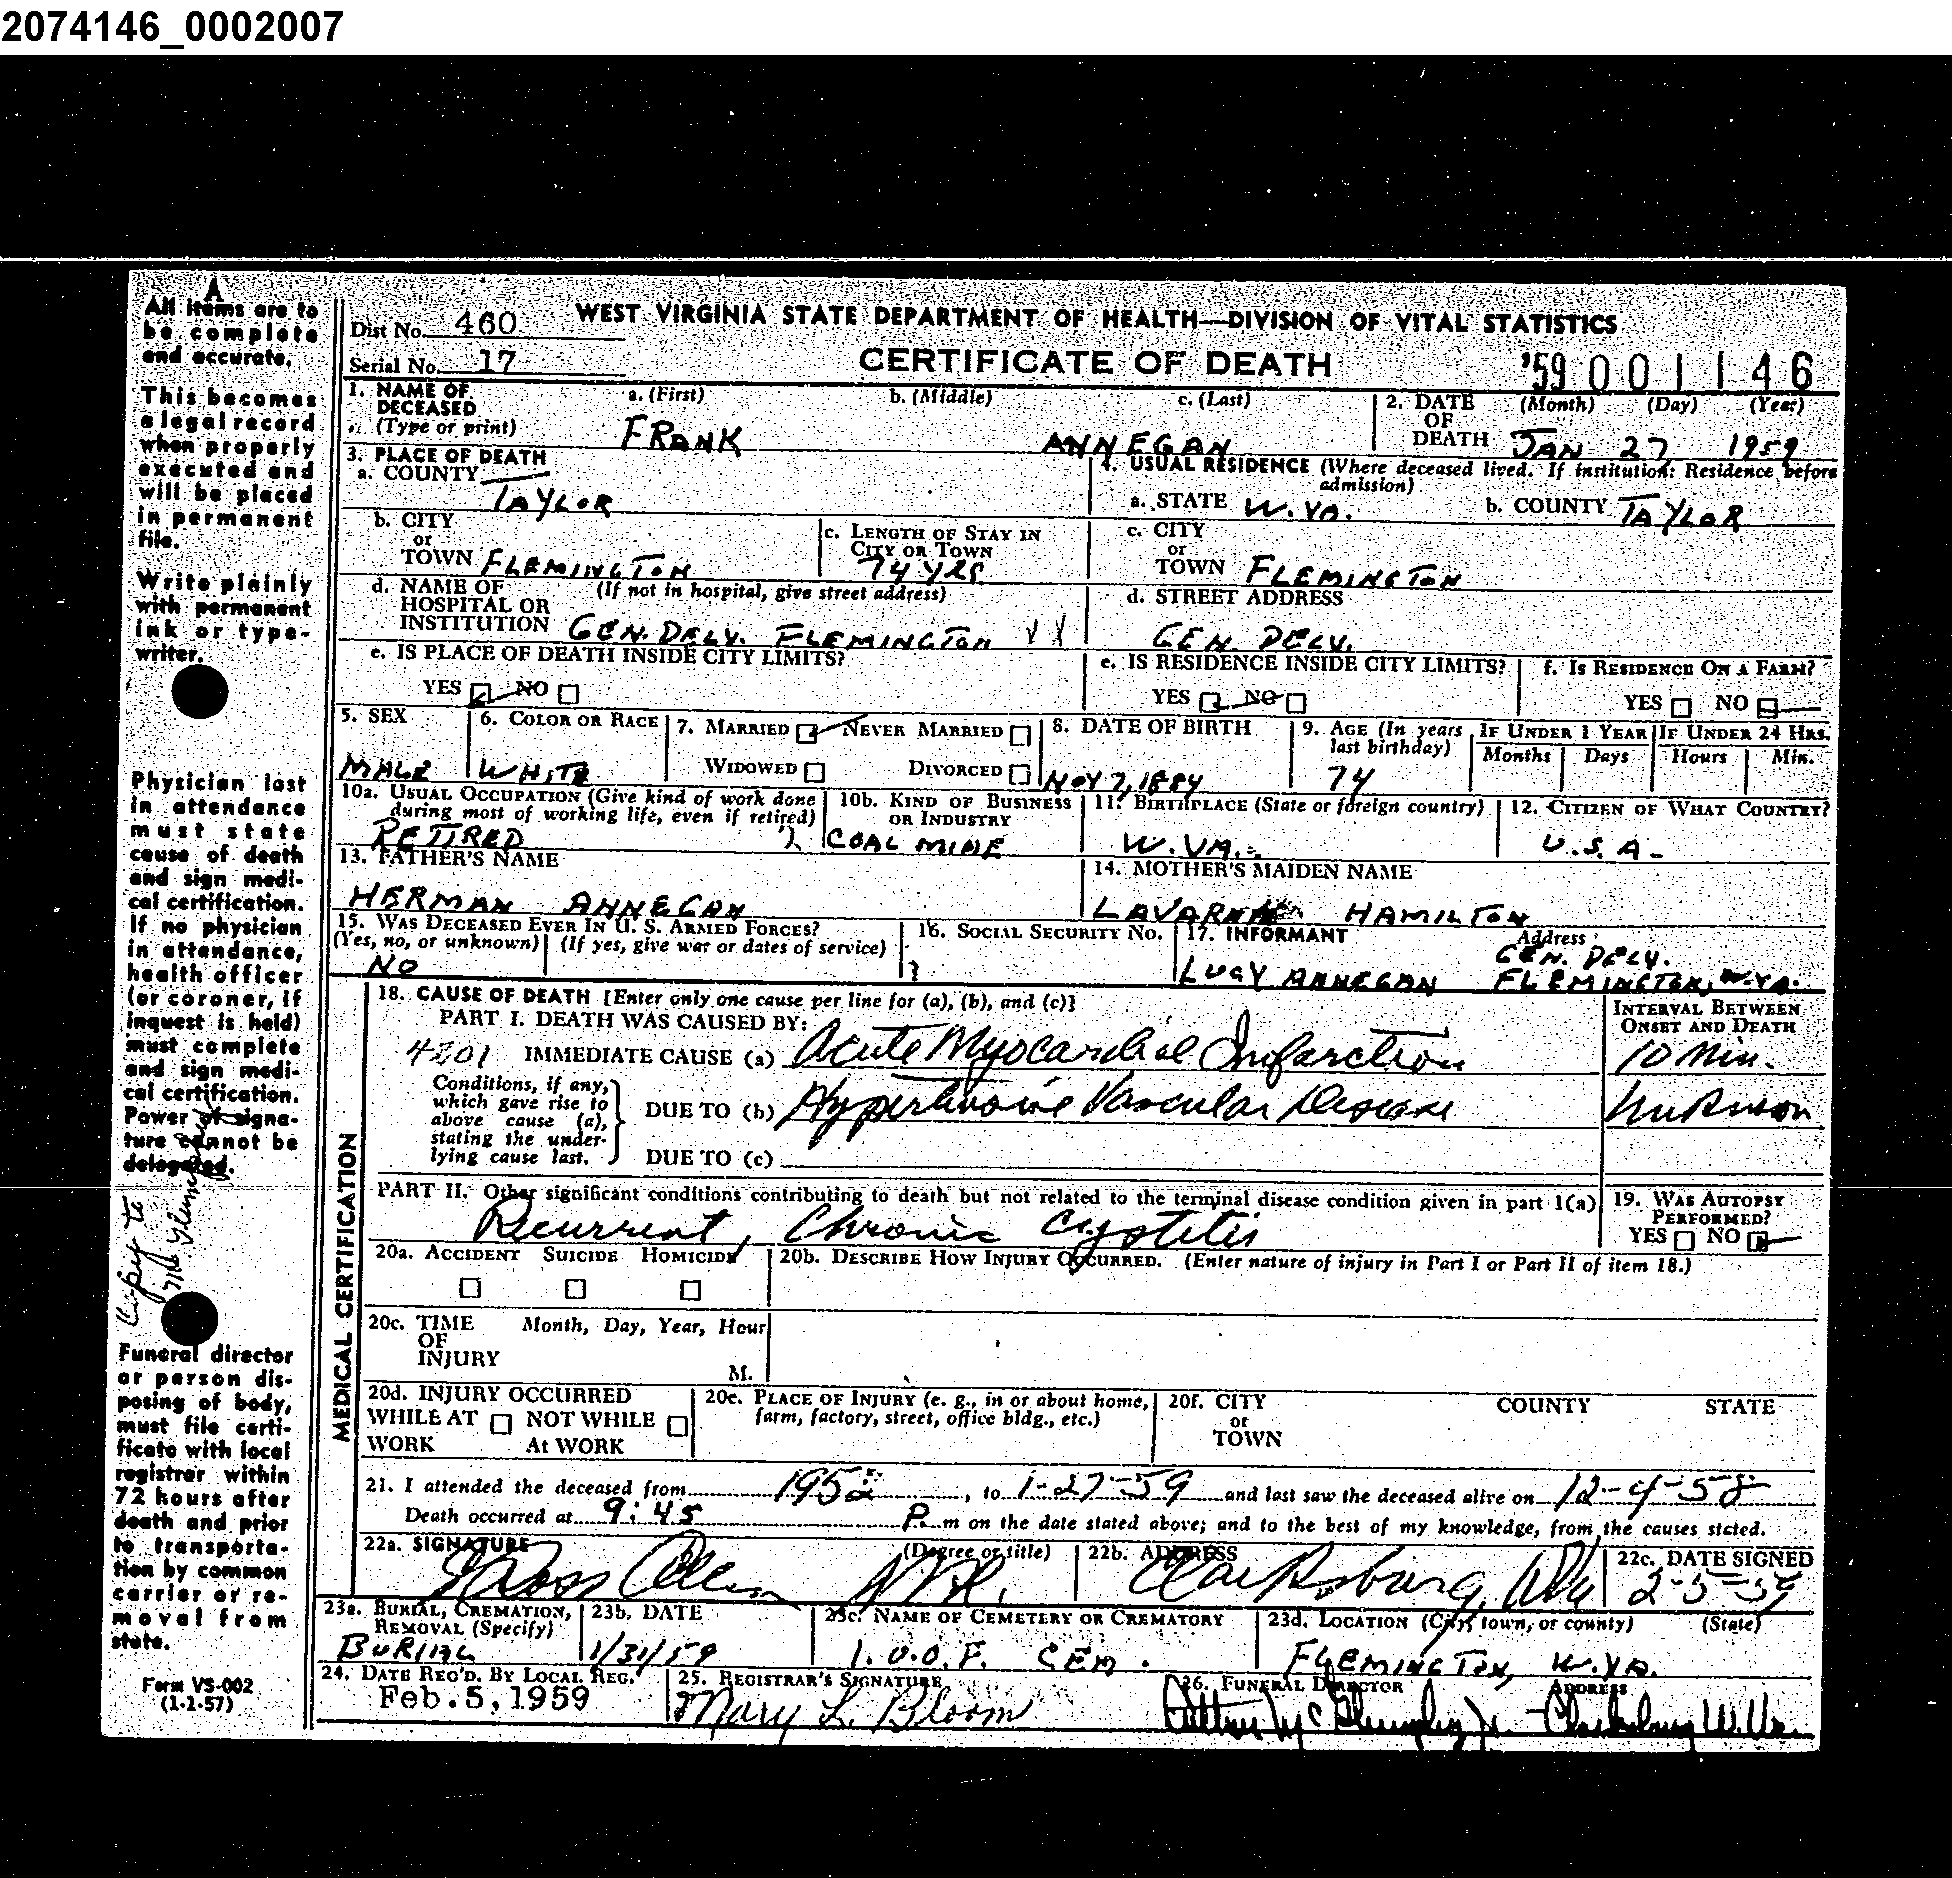 2074146_0002007
A
All items are to
be complete
and accurate.
This becomes
a legal record
when properly
executed and
will be placed
in permanent
file.
Write plainly
with permanent
ink or type-
writer.
Physician last
in attendance
must state
cause of death
and sign medi-
cal certification.
If no physician
in attendance,
health officer
(or coroner, if
inquest is held)
must complete
and sign medi-
cal certification.
Power of signa-
ture cannot be
delegated.
Copy to
Funeral director
or person dis-
posing of body,
must file certi-
ficate with local
registrar within
72 hours after
death and prior
to transporta-
tion by common
carrier or re-
moval from
state.
Form VS-002
(1-1-57)
Dist No. 460 WEST VIRGINIA STATE DEPARTMENT OF HEALTH—DIVISION OF VITAL STATISTICS
Serial No. 17 CERTIFICATE OF DEATH '59 001146
1. NAME OF DECEASED (Type or print) a. (First) b. (Middle) c. (Last) 2. DATE OF DEATH (Month) (Day) (Year)
FRANK ANNEGAN JAN 27 1959
3. PLACE OF DEATH 4. USUAL RESIDENCE (Where deceased lived. If institution: Residence before admission)
a. COUNTY TAYLOR a. STATE W. VA. b. COUNTY TAYLOR
b. CITY or TOWN FLEMINGTON c. LENGTH OF STAY IN CITY OR TOWN 74 YRS c. CITY or TOWN FLEMINGTON
d. NAME OF HOSPITAL OR INSTITUTION (If not in hospital, give street address) GEN. DELV. FLEMINGTON d. STREET ADDRESS GEN. DELV.
e. IS PLACE OF DEATH INSIDE CITY LIMITS? e. IS RESIDENCE INSIDE CITY LIMITS? f. IS RESIDENCE ON A FARM?
YES NO YES NO YES NO
5. SEX 6. COLOR OR RACE 7. MARRIED NEVER MARRIED 8. DATE OF BIRTH 9. AGE (In years last birthday) IF UNDER 1 YEAR IF UNDER 24 HRS.
WIDOWED DIVORCED Months Days Hours Min.
MALE WHITE NOV 7, 1884 74
10a. USUAL OCCUPATION (Give kind of work done during most of working life, even if retired) 10b. KIND OF BUSINESS OR INDUSTRY 11. BIRTHPLACE (State or foreign country) 12. CITIZEN OF WHAT COUNTRY?
RETIRED COAL MINE W. VA. U.S.A.
13. FATHER'S NAME 14. MOTHER'S MAIDEN NAME
HERMAN ANNEGAN HAMILTON
15. WAS DECEASED EVER IN U. S. ARMED FORCES? 16. SOCIAL SECURITY No. 17. INFORMANT Address
(Yes, no, or unknown) (If yes, give war or dates of service) GEN. DELV.
NO ? LUCY ANNEGAN FLEMINGTON, W. VA.
MEDICAL CERTIFICATION
18. CAUSE OF DEATH [Enter only one cause per line for (a), (b), and (c)] INTERVAL BETWEEN ONSET AND DEATH
PART I. DEATH WAS CAUSED BY:
4201 IMMEDIATE CAUSE (a) Acute Myocardial Infarction 10 Min.
Conditions, if any, which gave rise to above cause (a), stating the underlying cause last.
DUE TO (b) Hypertensive Vascular Disease Unknown
DUE TO (c)
PART II. Other significant conditions contributing to death but not related to the terminal disease condition given in part 1(a) 19. WAS AUTOPSY PERFORMED?
Recurrent, Chronic Cystitis YES NO
20a. ACCIDENT SUICIDE HOMICIDE 20b. DESCRIBE HOW INJURY OCCURRED. (Enter nature of injury in Part I or Part II of item 18.)
20c. TIME OF INJURY Month, Day, Year, Hour M.
20d. INJURY OCCURRED 20e. PLACE OF INJURY (e. g., in or about home, farm, factory, street, office bldg., etc.) 20f. CITY or TOWN COUNTY STATE
WHILE AT WORK NOT WHILE At WORK
21. I attended the deceased from 1952, to 1-27-59 and last saw the deceased alive on 12-4-58
Death occurred at 9:45 P. m on the date stated above; and to the best of my knowledge, from the causes stated.
22a. SIGNATURE (Degree or title) 22b. ADDRESS 22c. DATE SIGNED
Clarksburg, WVa 2-5-59
23a. BURIAL, CREMATION, REMOVAL (Specify) 23b. DATE 23c. NAME OF CEMETERY OR CREMATORY 23d. LOCATION (City, town, or county) (State)
BURIAL 1/31/59 I.O.O.F. CEM. FLEMINGTON, W. VA.
24. DATE REC'D. BY LOCAL REG. 25. REGISTRAR'S SIGNATURE 26. FUNERAL DIRECTOR ADDRESS
Feb. 5, 1959 Mary L. Bloom Clarksburg W. Va.